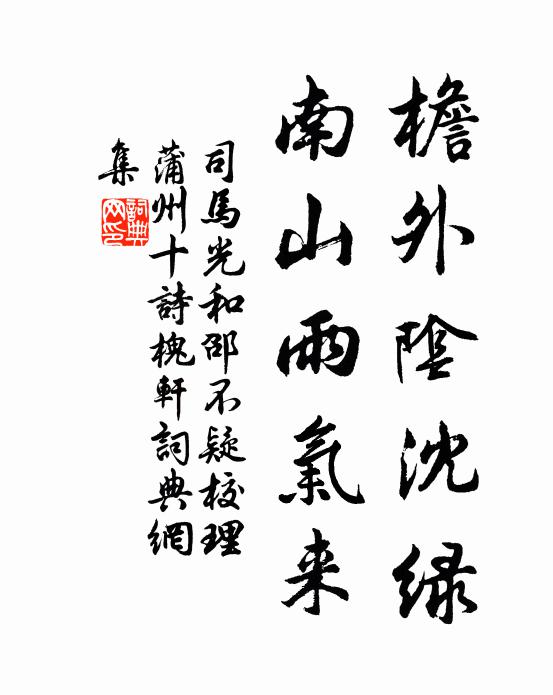 檐外陰沈綠
南山雨氣来
司馬光和邵不疑校理
蒲州十詩槐軒詞典網
集
詞典网印